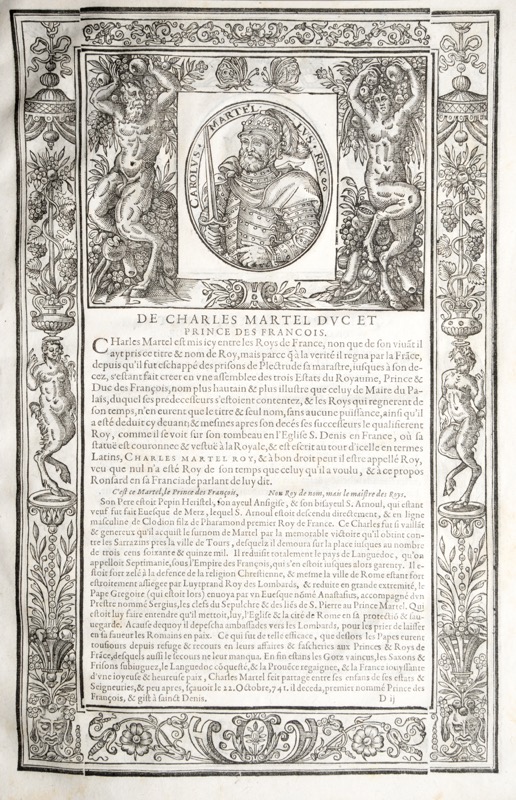 CAROLVS MARTELLVS REX
DE CHARLES MARTEL DVC ET
PRINCE DES FRANCOIS.
CHarles Martel est mis icy entre les Roys de France, non que de son viuãt il
ayt pris ce titre & nom de Roy, mais parce q̃ à la verité il regna par la Frãce,
depuis qu'il fut eschappé des prisons de Plectrude sa marastre, iusques à son de-
cez, s'estant fait creer en vne assemblee des trois Estats du Royaume, Prince &
Duc des François, nom plus hautain & plus illustre que celuy de Maire du Pa-
lais, duquel ses predecesseurs s'estoient contentez, & les Roys qui regnerent de
son temps, n'en eurent que le titre & seul nom, sans aucune puissance, ainsi qu'il
a esté deduit cy deuant; & mesmes apres son decés ses successeurs le qualifierent
Roy, comme il se voit sur son tombeau en l'Eglise S. Denis en France, où sa
statuë est couronnee & vestuë à la Royale, & est escrit au tour d'icelle en termes
Latins, CHARLES MARTEL ROY, & à bon droit peut il estre appellé Roy,
veu que nul n'a esté Roy de son temps que celuy qu'il a voulu, & à ce propos
Ronsard en sa Franciade parlant de luy dit.
C'est ce Martel, le Prince des François, Non Roy de nom, mais le maistre des Roys.
Son Pere estoit Pepin Heristel, son ayeul Ansigise, & son bisayeul S. Arnoul, qui estant
veuf fut fait Euesque de Metz, lequel S. Arnoul estoit descendu directement, & en ligne
masculine de Clodion filz de Pharamond premier Roy de France. Ce Charles fut si vaillãt
& genereux qu'il acquist le surnom de Martel par la memorable victoire qu'il obtint con-
tre les Sarrazins pres la ville de Tours, desquelz il demoura sur la place iusques au nombre
de trois cens soixante & quinze mil. Il reduisit totalement le pays de Languedoc, qu'on
appelloit Septimanie, sous l'Empire des François, qui s'en estoit iusques alors garenty. Il e-
stoit fort zelé à la defence de la religion Chrestienne, & mesme la ville de Rome estant fort
estroitement assieger par Luytprand Roy des Lombards, & reduite en grande extremité, le
Pape Gregoire (qui estoit lors) enuoya par vn Euesque nõmé Anastasius, accompagné d'vn
Prestre nommé Sergius, les clefs du Sepulchre & des liés de S. Pierre au Prince Martel. Qui
estoit luy faire entendre qu'il mettoit, luy, l'Eglise & la cité de Rome en sa protectiõ & sau-
uegarde. A cause dequoy il depescha ambassades vers les Lombards, pour les prier de laisser
en sa faueur les Romains en paix. Ce qui fut de telle efficace, que deslors les Papes eurent
tousiours depuis refuge & recours en leurs affaires & fascheries aux Princes & Roys de
Frãce, desquels aussi le secours ne leur manqua. En fin estans les Gotz vaincus, les Saxons &
Frisons subiuguez, le Languedoc cõquesté, & la Prouẽce regaignee, & la France iouyssante
d'vne ioyeuse & heureuse paix, Charles Martel feit partage entre ses enfans de ses estats &
Seigneuries, & peu apres, sçauoir le 22. Octobre, 741. il deceda, premier nommé Prince des
François, & gist à sainct Denis.
D ij